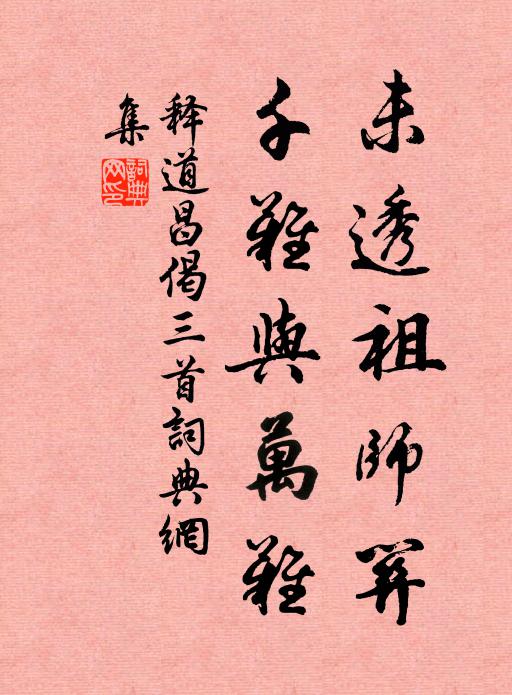 未透祖師關
千難與萬難
释道昌偈三首詞典網
集
詞典網印